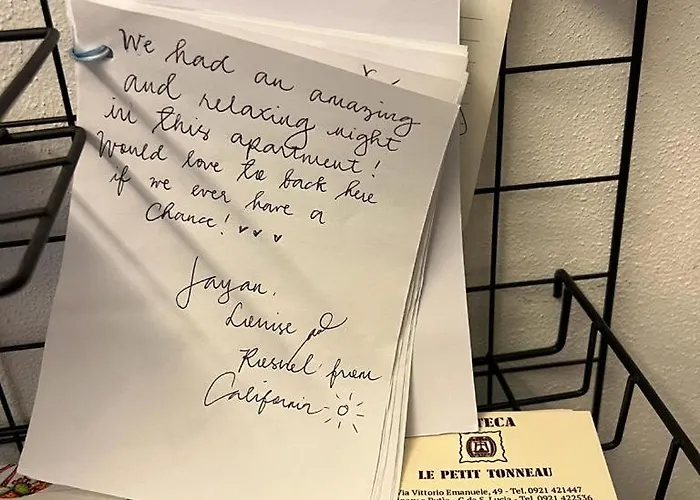 We had an amazing
and relaxing night
in this apartment!
Would love to back here
if we ever have a
Chance!
Jayan,
Louise
from
California
TECA
LE PETIT TONNEAU
Via Vittorio Emanuele, 49 - Tel. 0921 421447
Tel. 0921 422536